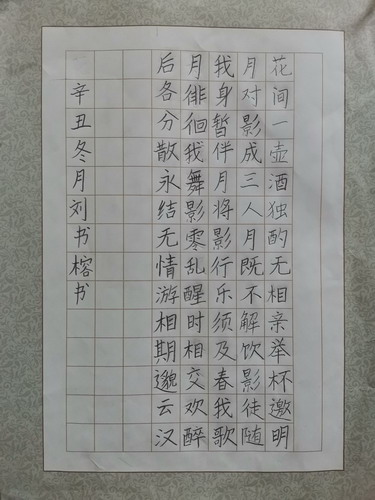 花间一壶酒独酌无相亲举杯邀明
月对影成三人月既不解饮影徒随
我身暂伴月将影行乐须及春我歌
月徘徊我舞影零乱醒时相交欢醉
后各分散永结无情游相期邈云汉
辛丑冬月刘书榕书